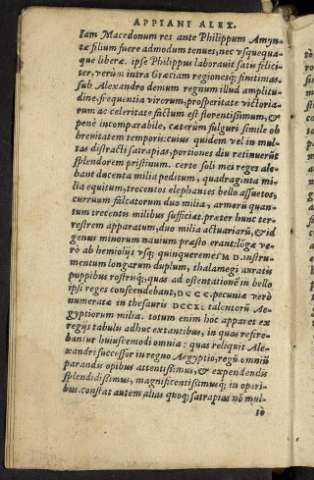 APPIANI ALEX.
Iam Macedonum res ante Philippum Amyn-
tæ filium fuere admodum tenues, nec usquequa-
que liberæ. ipse Philippus laborauit satis felici-
ter, verùm intra Græciam regionesq; finitimas.
sub Alexandro demum regnum illud amplitu-
dine, frequentia virorum, prosperitate victoria-
rum ac celeritate factum est florentissimum, &
penè incomparabile, cæterùm fulguri simile ob
breuitatem temporis: cuius quidem vel in mul-
tas distracti satrapias, portiones diu retinuerūt
splendorem pristinum. certe soli mei reges ale-
bant ducenta milia peditum, quadraginta mi-
lia equitum, trecentos elephantes bello assuetos,
curruum falcatorum duo milia, armorū quan-
tum trecentis milibus sufficiat. præter hunc ter-
restrem apparatum, duo milia actuariorū, & id
genus minorum nauium præsto erant: lōga ve-
rò ab hemiolijs vsq; quinqueremes M D. instru-
mentum longarum duplum, thalamegi auratis
puppibus rostrisq;, quas ad ostentationē in bello
ipsi reges conscendebant, DCCC, pecuniæ verò
numeratæ in thesauris DCCXL talentorū Ae-
gyptiorum milia. totum enim hoc apparet ex
regijs tabulis adhuc extantibus, in quas refire-
bantur huiuscemodi omnia: quas reliquit Ale-
xandri successor in regno Aegyptio, regū omniū
parandis opibus attentissimus, & expendendis
splendidissimus, magnificentissimusq; in operi-
bus. constat autem alias quoq; satrapias nō mul-
to